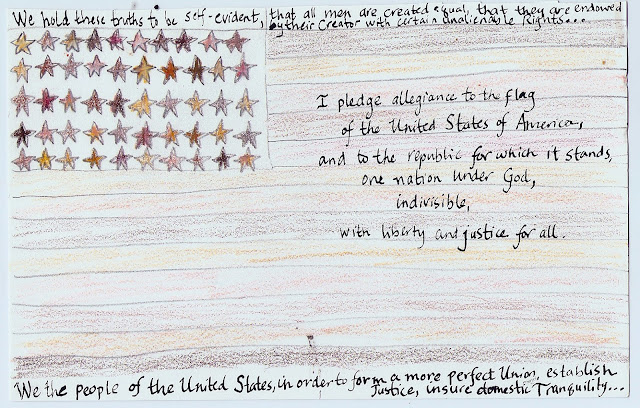 We hold these truths to be self-evident, that all men are created equal, that they are endowed
by their Creator with certain unalienable Rights...
I pledge allegiance to the flag
of the United States of America,
and to the republic for which it stands,
one nation under God,
indivisible,
with liberty and justice for all.
We the people of the United States, in order to form a more perfect Union, establish
Justice, insure domestic Tranquility...